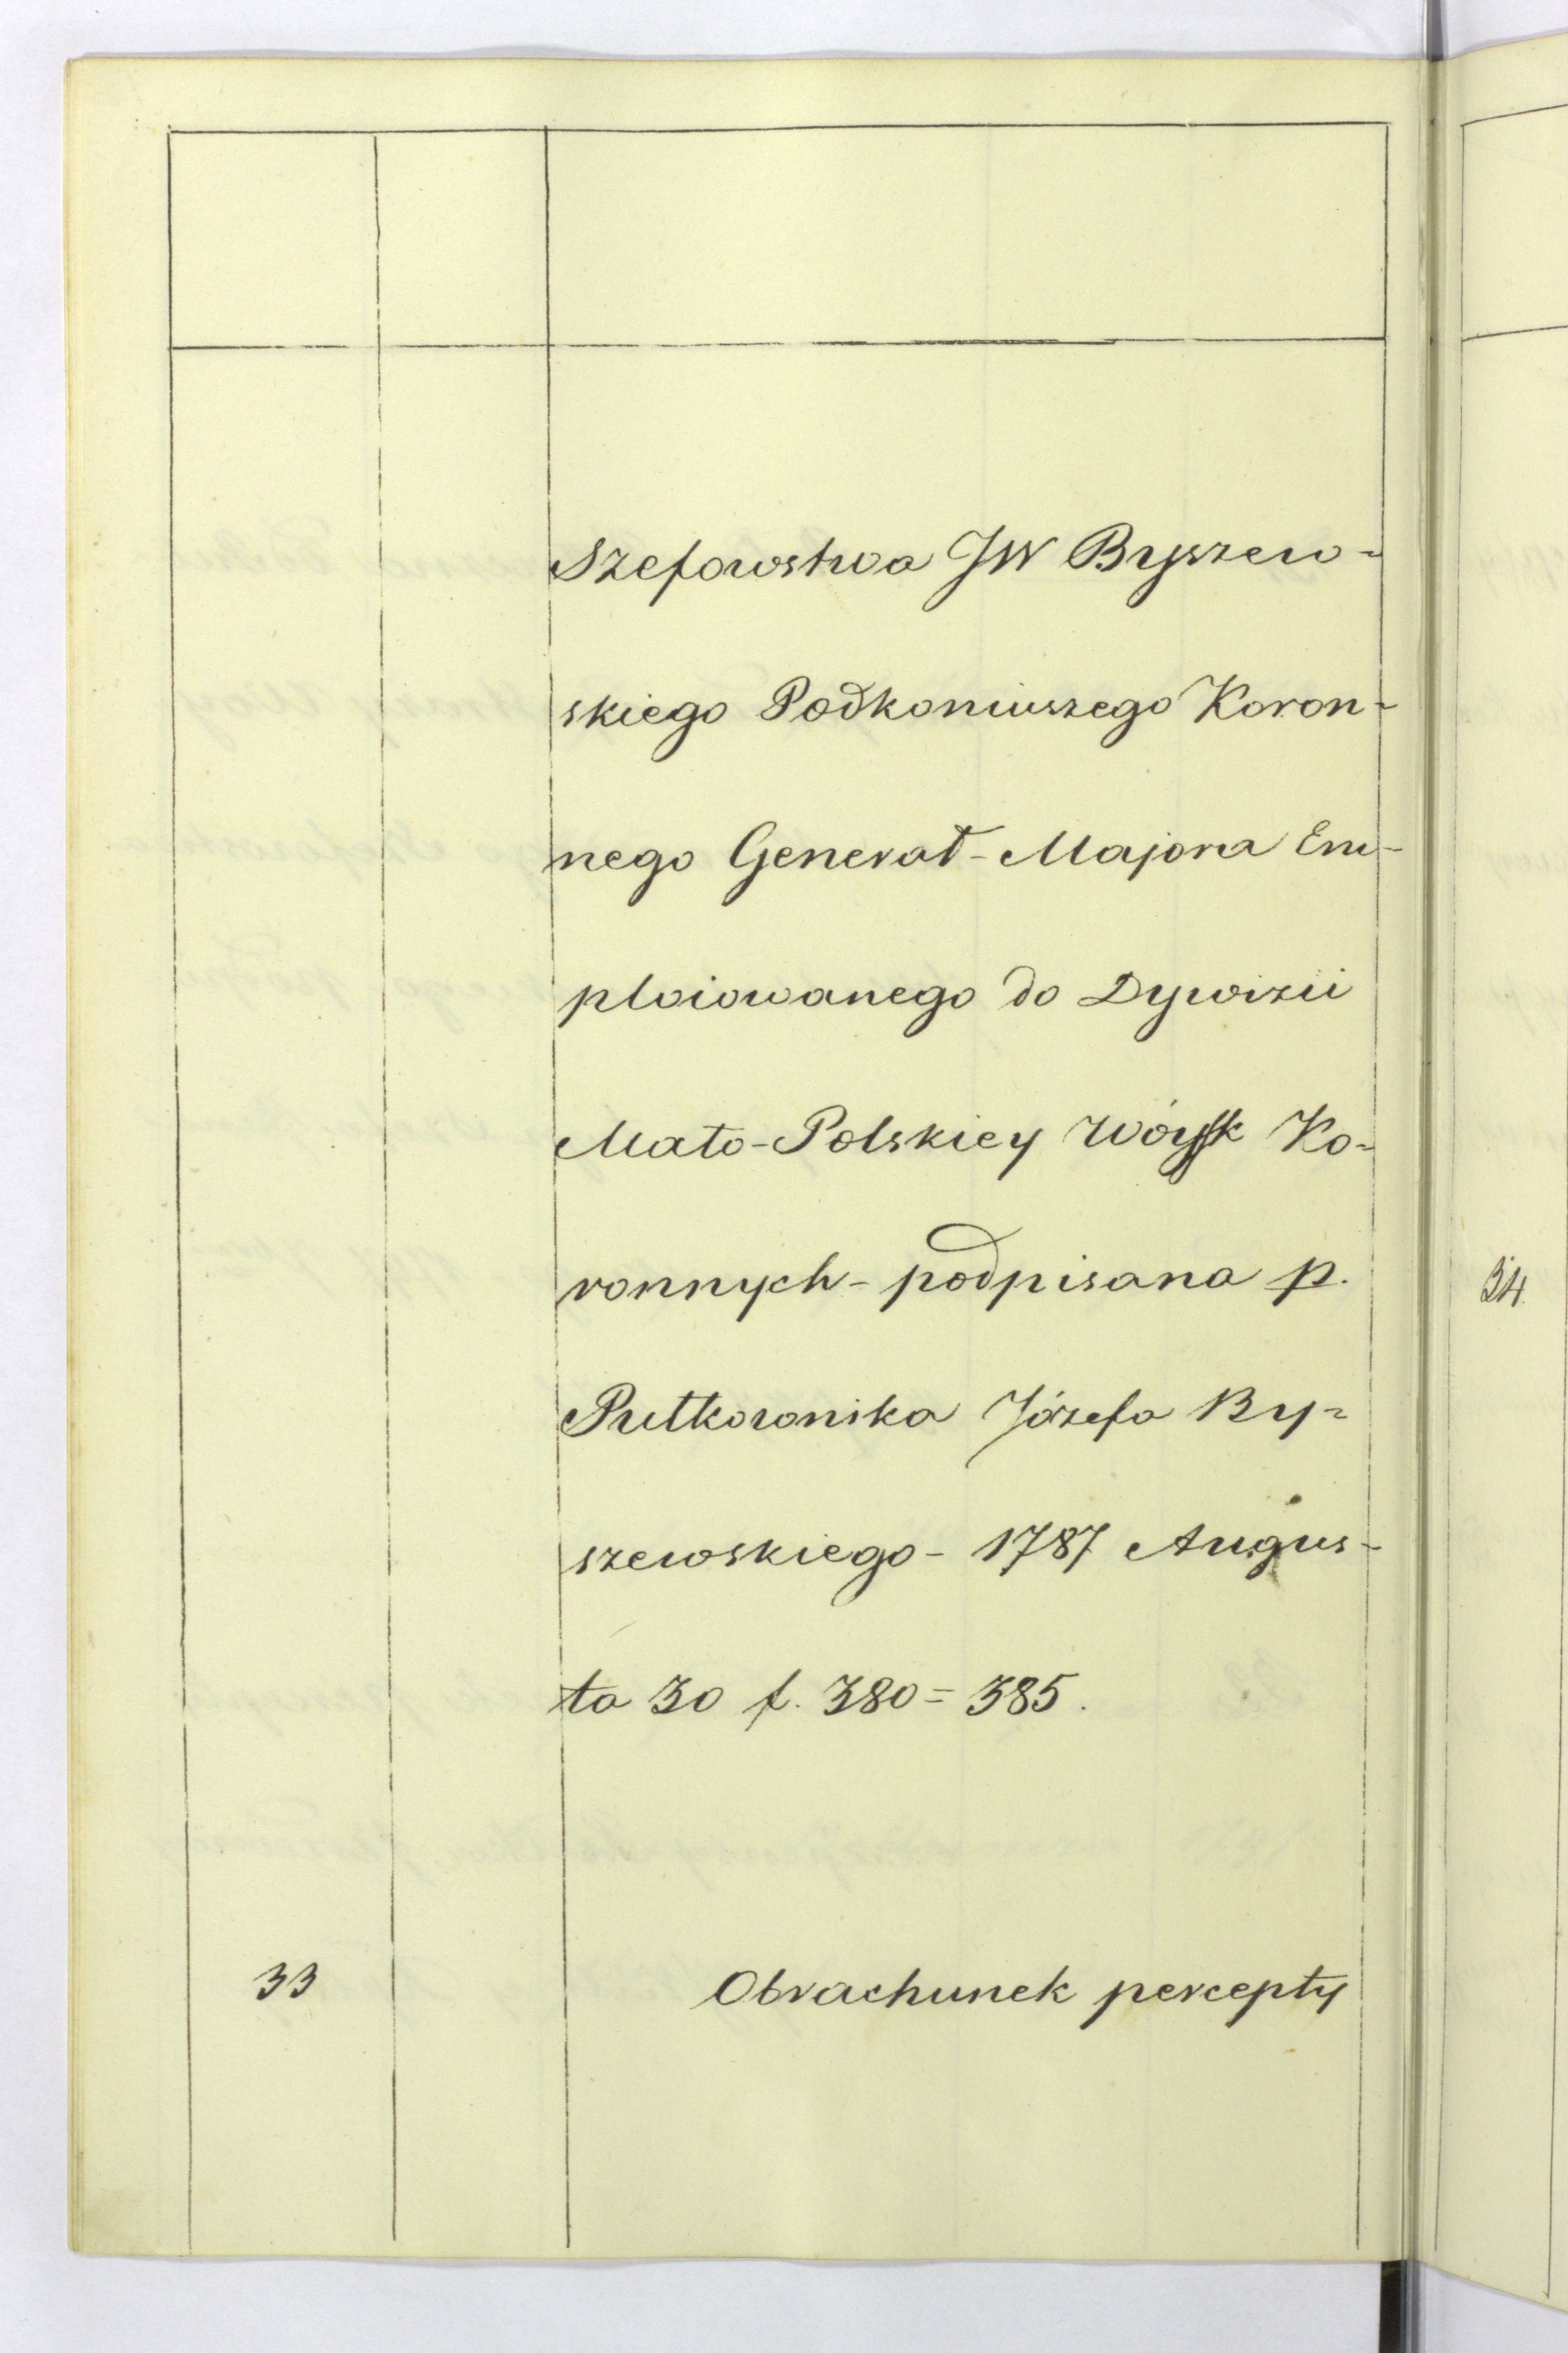 Szefowstwa JW Byszew=
skiego Podkoniuszego Koron=
nego Generał-Majora Em-
ploiowanego do Dywizii
Mało-Polskiey Woysk Ko=
ronnych - podpisana p.
Pułkownika Józefa By=
szewskiego - 1787 Augus-
ta 30 f. 380 = 385.
33 Obrachunek percepty
34